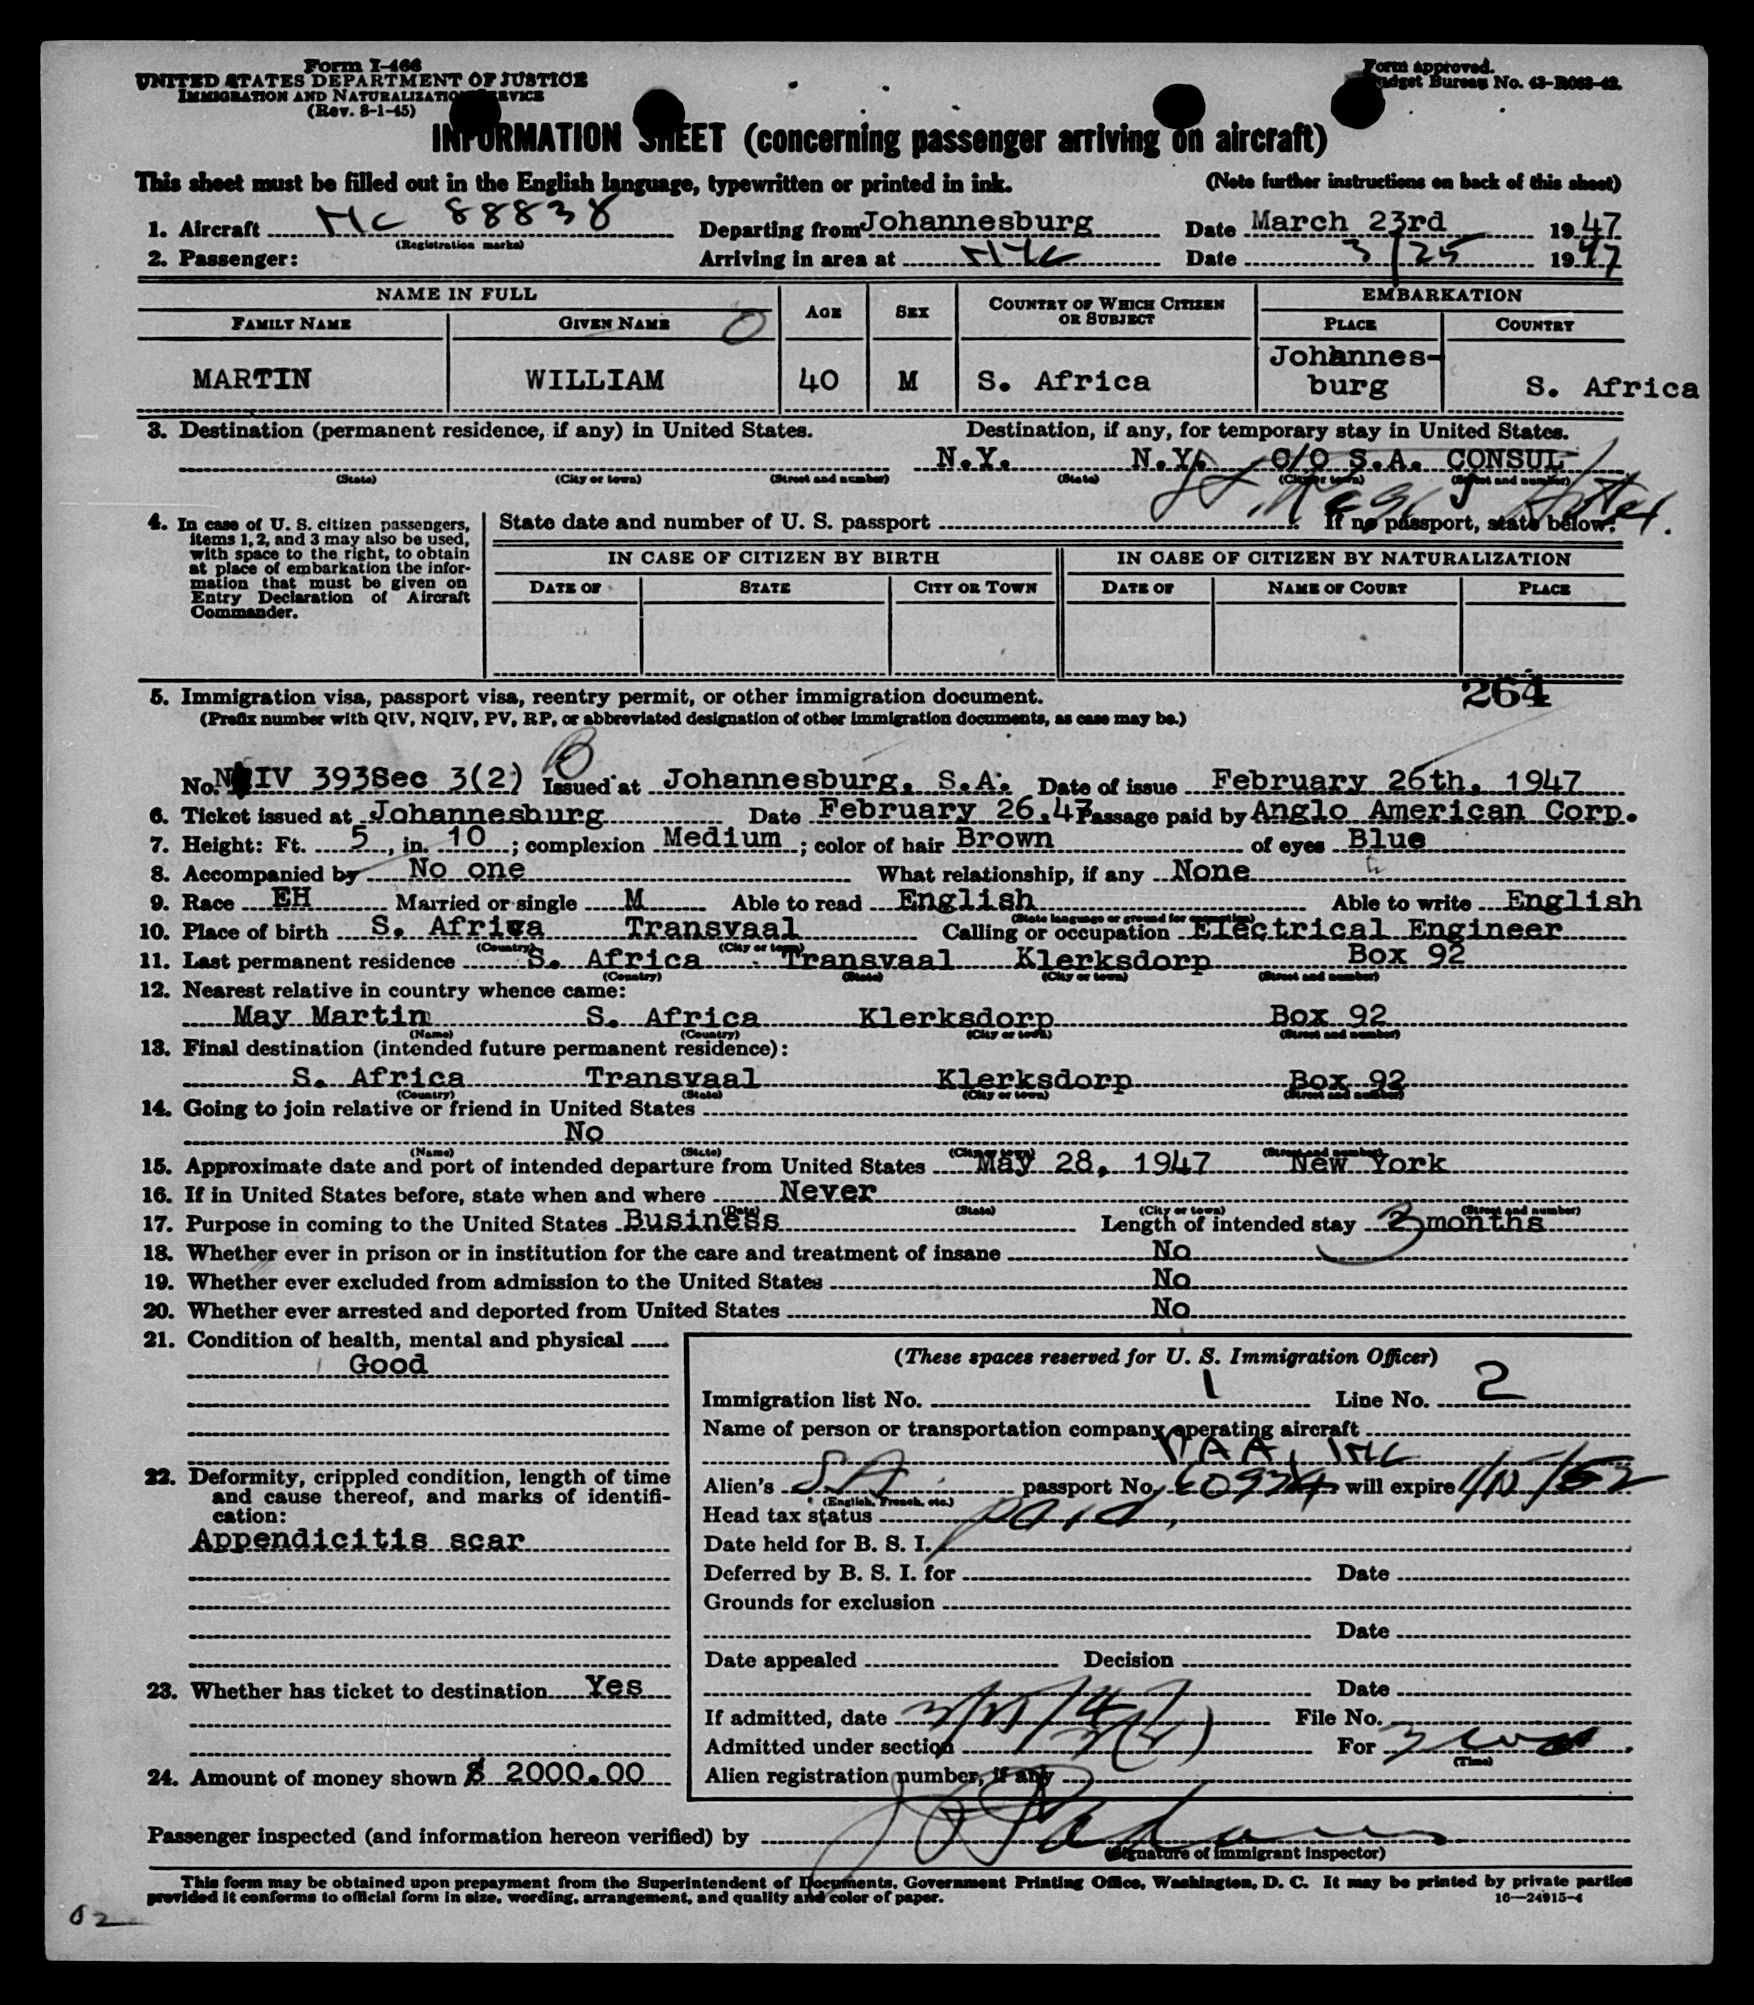 Form I-466
UNITED STATES DEPARTMENT OF JUSTICE
IMMIGRATION AND NATURALIZATION SERVICE
(Rev. 8-1-45)
Form approved.
Budget Bureau No. 43-R063-42.
INFORMATION SHEET (concerning passenger arriving on aircraft)
This sheet must be filled out in the English language, typewritten or printed in ink. (Note further instructions on back of this sheet)
1. Aircraft NC 88838 Departing from Johannesburg Date March 23rd 1947
(Registration marks)
2. Passenger: Arriving in area at NYC Date 3/25 1947
NAME IN FULL AGE SEX COUNTRY OF WHICH CITIZEN OR SUBJECT EMBARKATION
FAMILY NAME GIVEN NAME PLACE COUNTRY
MARTIN WILLIAM 40 M S. Africa Johannes-burg S. Africa
3. Destination (permanent residence, if any) in United States. Destination, if any, for temporary stay in United States.
N.Y. N.Y. C/O S.A. CONSUL
(State) (City or town) (Street and number) (State) (City or town) (Street and number)
Hotel.
4. In case of U. S. citizen passengers, items 1, 2, and 3 may also be used, with space to the right, to obtain at place of embarkation the information that must be given on Entry Declaration of Aircraft Commander.
State date and number of U. S. passport If no passport, state below:
IN CASE OF CITIZEN BY BIRTH IN CASE OF CITIZEN BY NATURALIZATION
DATE OF STATE CITY OR TOWN DATE OF NAME OF COURT PLACE
264
5. Immigration visa, passport visa, reentry permit, or other immigration document.
(Prefix number with QIV, NQIV, PV, RP, or abbreviated designation of other immigration documents, as case may be.)
No. NQIV 393Sec 3(2) Issued at Johannesburg, S.A. Date of issue February 26th, 1947
6. Ticket issued at Johannesburg Date February 26.47 Passage paid by Anglo American Corp.
7. Height: Ft. 5, in. 10; complexion Medium; color of hair Brown of eyes Blue
8. Accompanied by No one What relationship, if any None
9. Race EH Married or single M Able to read English Able to write English
(State language or ground for exemption)
10. Place of birth S. Africa Transvaal Calling or occupation Electrical Engineer
(Country) (City or town)
11. Last permanent residence S. Africa Transvaal Klerksdorp Box 92
(Country) (State) (City or town) (Street and number)
12. Nearest relative in country whence came:
May Martin S. Africa Klerksdorp Box 92
(Name) (Country) (City or town) (Street and number)
13. Final destination (intended future permanent residence):
S. Africa Transvaal Klerksdorp Box 92
(Country) (State) (City or town) (Street and number)
14. Going to join relative or friend in United States
No
(Name) (State) (City or town) (Street and number)
15. Approximate date and port of intended departure from United States May 28, 1947 New York
16. If in United States before, state when and where Never
(Date) (State) (City or town) (Street and number)
17. Purpose in coming to the United States Business Length of intended stay 3 months
18. Whether ever in prison or in institution for the care and treatment of insane No
19. Whether ever excluded from admission to the United States No
20. Whether ever arrested and deported from United States No
21. Condition of health, mental and physical
Good
22. Deformity, crippled condition, length of time and cause thereof, and marks of identification:
Appendicitis scar
23. Whether has ticket to destination Yes
24. Amount of money shown $ 2000.00
(These spaces reserved for U. S. Immigration Officer)
Immigration list No. 1 Line No. 2
Name of person or transportation company operating aircraft
PAA, INC
Alien's SA passport No. will expire
(English, French, etc.)
Head tax status paid,
Date held for B. S. I.
Deferred by B. S. I. for Date
Grounds for exclusion
Date
Date appealed Decision
Date
If admitted, date 3/25/47 File No.
Admitted under section 3(2) For 3 mos
(Time)
Alien registration number, if any
Passenger inspected (and information hereon verified) by
(Signature of immigrant inspector)
This form may be obtained upon prepayment from the Superintendent of Documents, Government Printing Office, Washington, D. C. It may be printed by private parties
provided it conforms to official form in size, wording, arrangement, and quality and color of paper. 16—24915-4